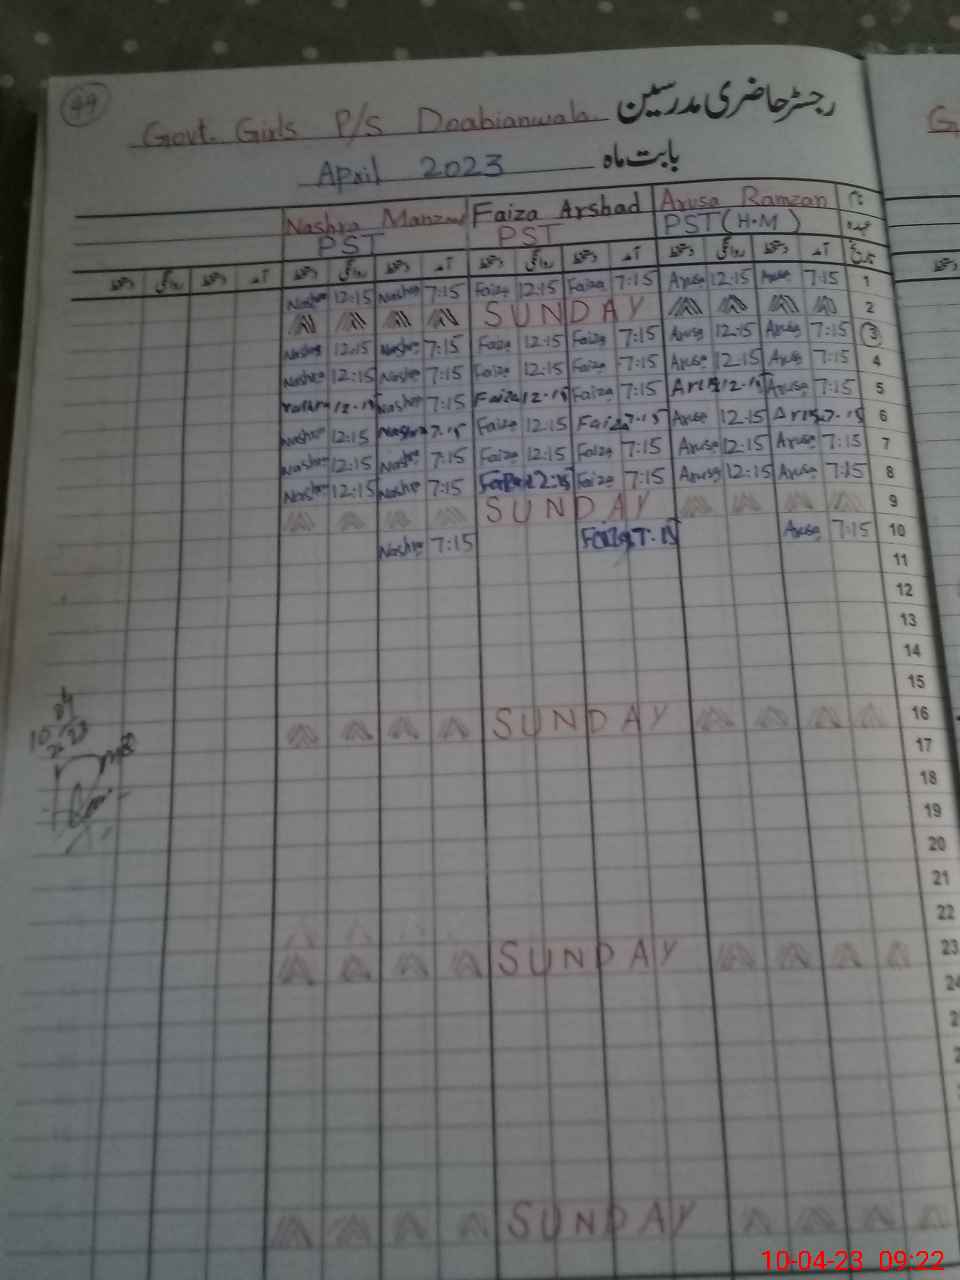 44
Govt. Girls P/S Doabianwala رجسٹر حاضری مدرسین
April 2023 بابت ماہ
Nashra Manzoor Faiza Arshad Arusa Ramzan نام
PST PST PST (H.M) عہدہ
دستخط روانگی دستخط آمد دستخط روانگی دستخط آمد دستخط روانگی دستخط آمد دستخط روانگی دستخط آمد تاریخ
Nashra 12:15 Nashra 7:15 Faiza 12:15 Faiza 7:15 Arusa 12:15 Arusa 7:15 1
SUNDAY 2
Nashra 12:15 Nashra 7:15 Faiza 12:15 Faiza 7:15 Arusa 12:15 Arusa 7:15 3
Nashra 12:15 Nashra 7:15 Faiza 12:15 Faiza 7:15 Arusa 12:15 Arusa 7:15 4
12.15 Nashra 7:15 Faiza 12.15 Faiza 7:15 12.15 Arusa 7:15 5
Nashra 12:15 Nashra 7.15 Faiza 12:15 Faiza 7.15 Arusa 12:15 7.15 6
Nashra 12:15 Nashra 7:15 Faiza 12:15 Faiza 7:15 Arusa 12:15 Arusa 7:15 7
Nashra 12:15 Nashra 7:15 Faiza 12:15 Faiza 7:15 Arusa 12:15 Arusa 7:15 8
SUNDAY 9
Nashra 7:15 Faiza 7.15 Arusa 7:15 10
11
12
13
14
15
SUNDAY 16
17
18
19
20
21
22
SUNDAY 23
24
SUNDAY
10-04-23 09:22